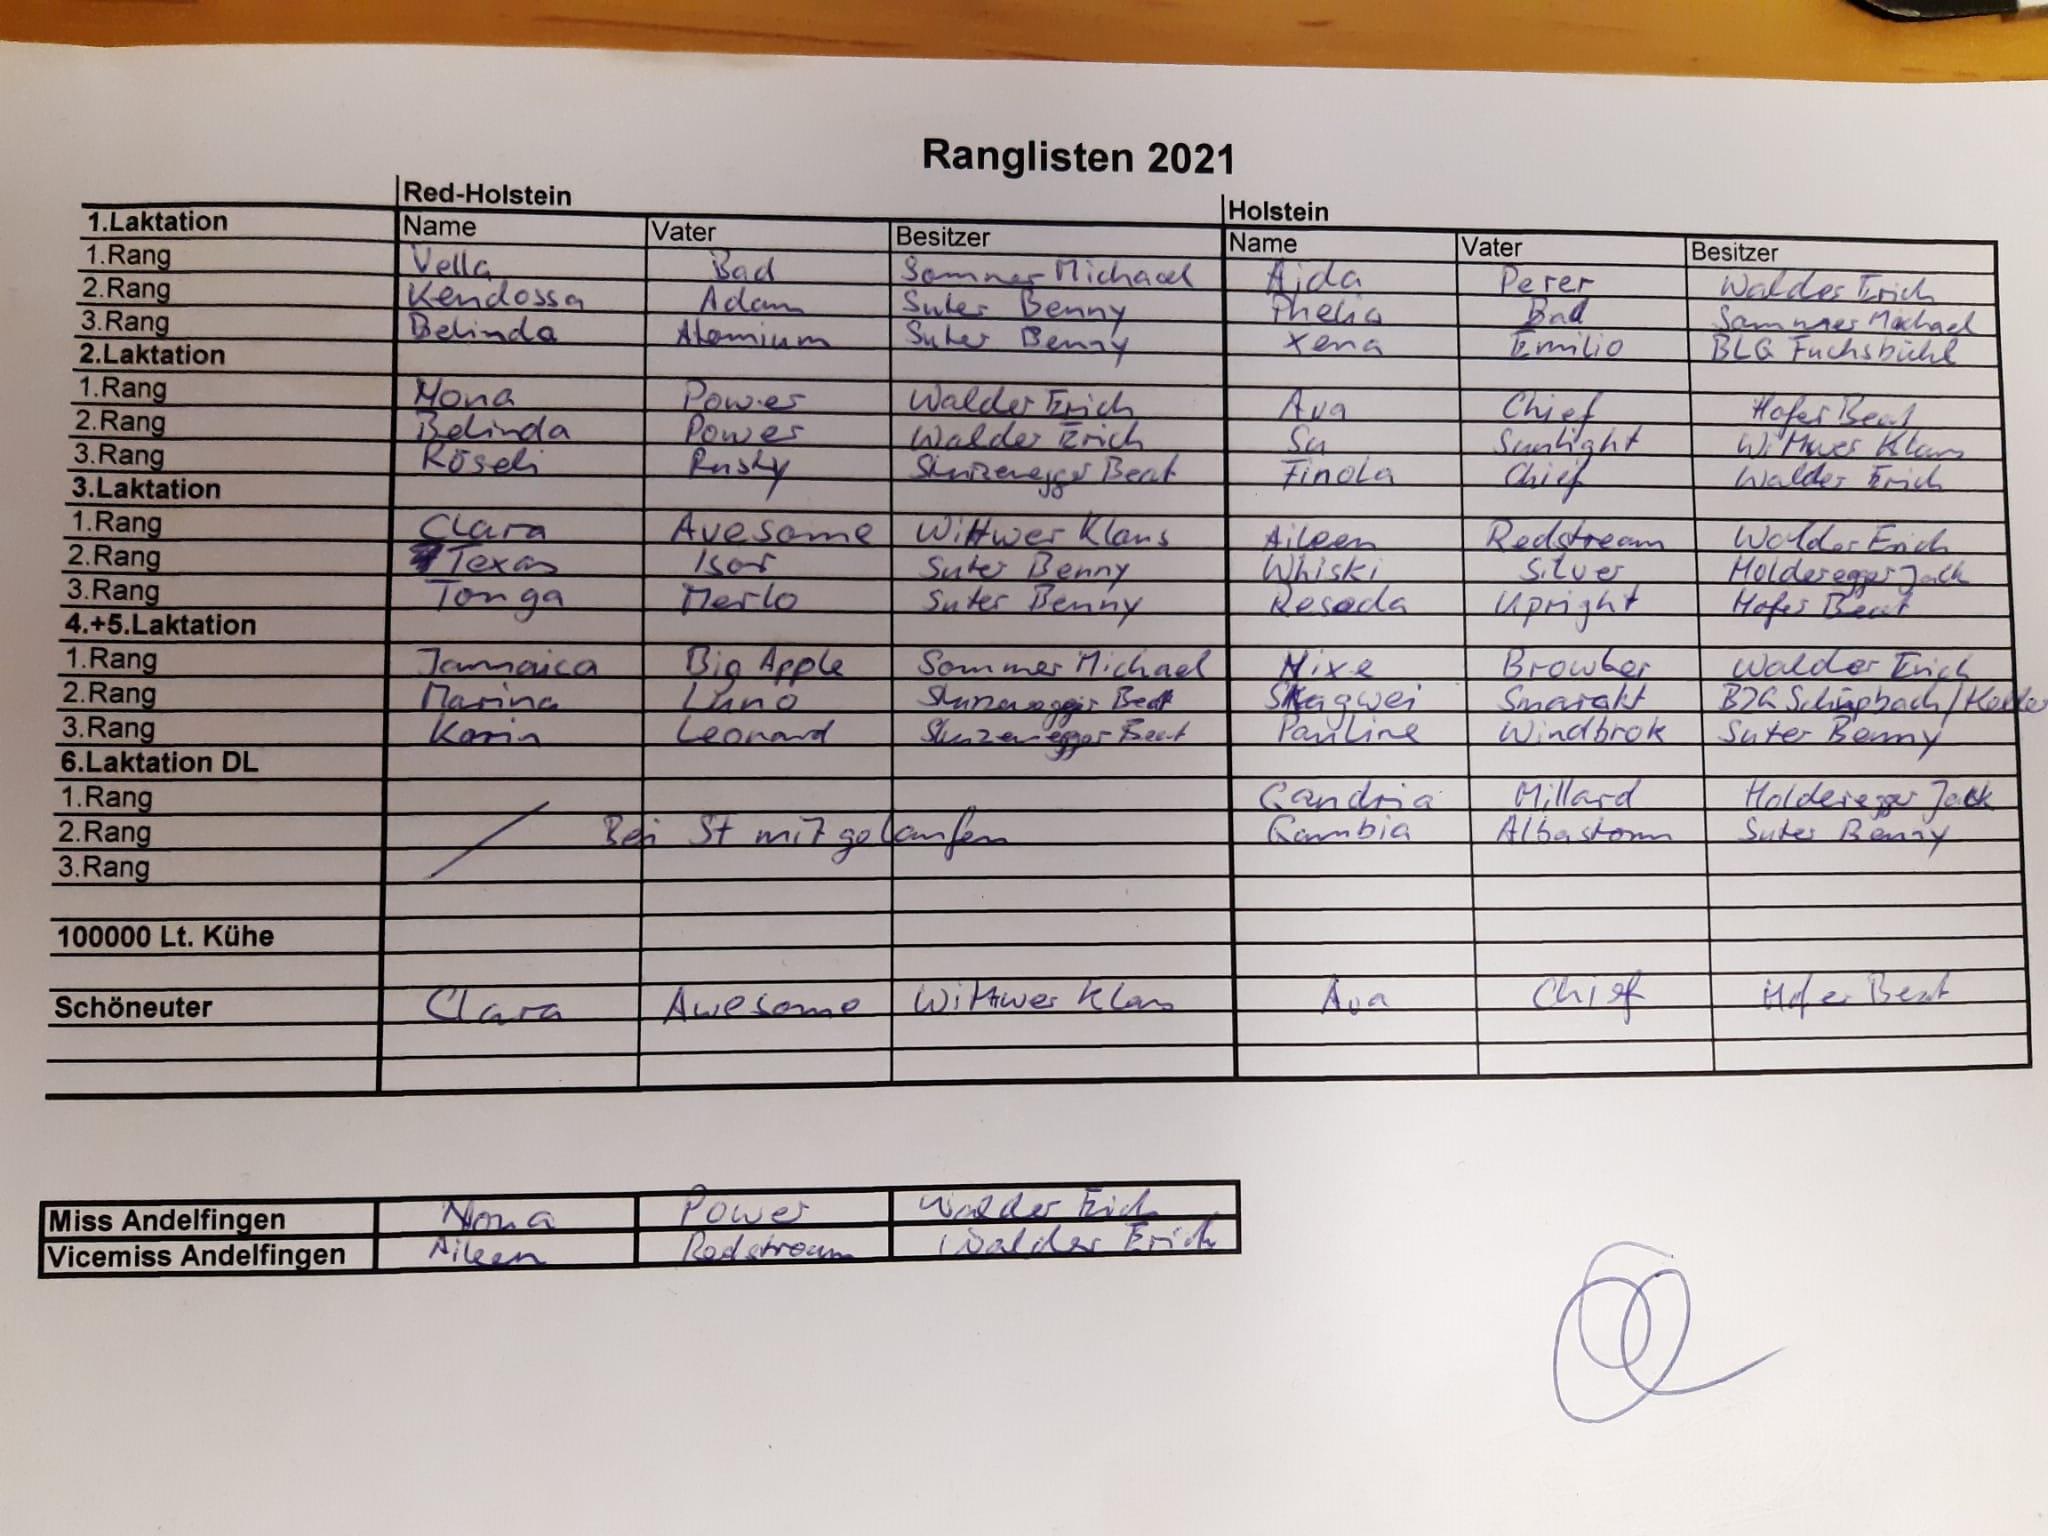 Ranglisten 2021
Red-Holstein Holstein
1.Laktation Name Vater Besitzer Name Vater Besitzer
1.Rang Vella Bad Sommer Michael Ajda Perer Walder Erich
2.Rang Kendossa Adam Suter Benny Thelia Bad Sommer Michael
3.Rang Belinda Atomium Suter Benny Xena Emilio BLG Fuchsbühl
2.Laktation
1.Rang Mona Power Walder Erich Ava Chief Hofer Beat
2.Rang Belinda Power Walder Erich Su Sunlight Wittwer Klaus
3.Rang Röseli Rusty Beat Finola Chief Walder Erich
3.Laktation
1.Rang Clara Avesome Wittwer Klaus Aileen Redstream Walder Erich
2.Rang Texas Isar Suter Benny Whiski Silver Holderegger Jack
3.Rang Tonga Merlo Suter Benny Reseda Upright Hofer Beat
4.+5.Laktation
1.Rang Jamaica Big Apple Sommer Michael Nixe Walder Erich
2.Rang Marina Luno Beat Skagwei Smarakt Schüpbach/
3.Rang Karin Leonard Beat Pauline Windbrok Suter Benny
6.Laktation DL
1.Rang Gandria Millard Holderegger Jack
2.Rang Bei St mitgelaufen Gambia Suter Benny
3.Rang
100000 Lt. Kühe
Schöneuter Clara Awesome Wittwer Klaus Ava Chief Hofer Beat
Miss Andelfingen Mona Power Walder Erich
Vicemiss Andelfingen Aileen Redstream Walder Erich